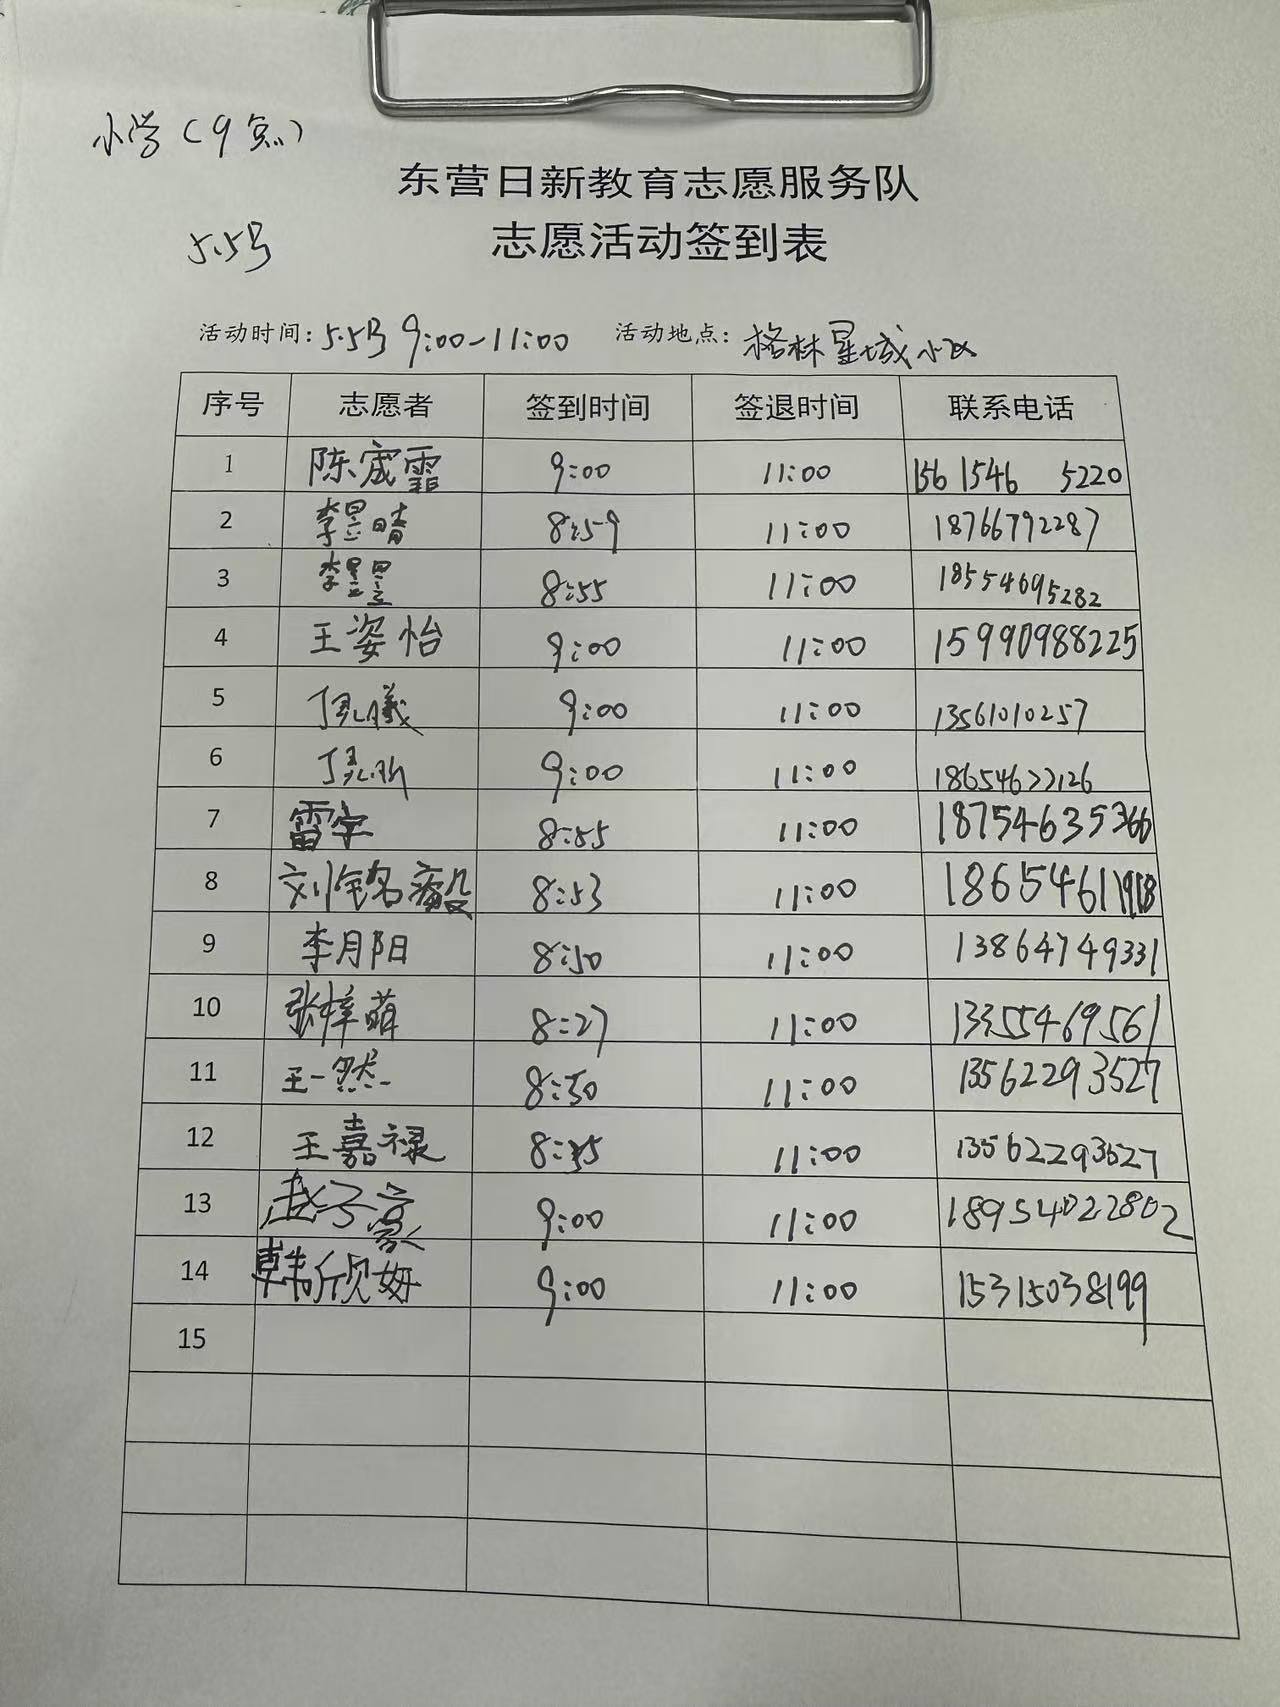 小学（9点）
东营日新教育志愿服务队
5.5号
志愿活动签到表
活动时间：5.5号 9:00-11:00 活动地点：格林星城小区
序号 志愿者 签到时间 签退时间 联系电话
1 陈宬霏 9:00 11:00 156 1546 5220
2 李昱晴 8:59 11:00 18766792287
3 李昱昱 8:55 11:00 18554695282
4 王姿怡 9:00 11:00 15990988225
5 9:00 11:00 13561010257
6 9:00 11:00 18654622126
7 雷宇 8:55 11:00 18754635366
8 刘铭 8:53 11:00
9 李月阳 8:50 11:00 13864749331
10 张梓萌 8:27 11:00 13355469561
11 王一然 8:50 11:00 13562293527
12 王嘉禄 11:00 13562293527
13 赵子豪 9:00 11:00 18954022802
14 韩欣妍 9:00 11:00 15315038199
15